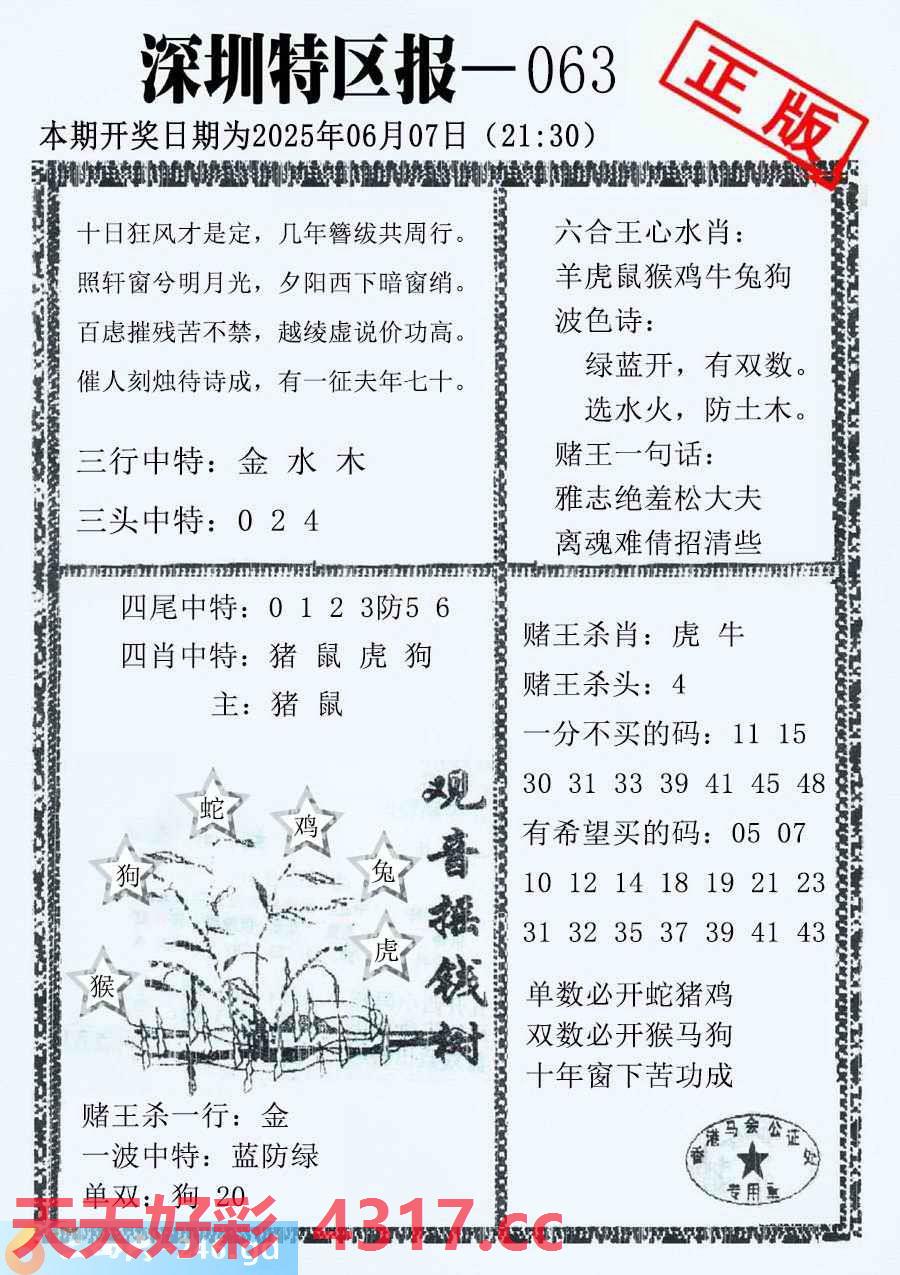 深圳特区报—063
正版
本期开奖日期为2025年06月07日（21:30）
十日狂风才是定，几年簪绂共周行。
照轩窗兮明月光，夕阳西下暗窗绡。
百虑摧残苦不禁，越绫虚说价功高。
催人刻烛待诗成，有一征夫年七十。
三行中特：金 水 木
三头中特：0 2 4
六合王心水肖：
羊虎鼠猴鸡牛兔狗
波色诗：
绿蓝开，有双数。
选水火，防土木。
赌王一句话：
雅志绝羞松大夫
离魂难倩招清些
四尾中特：0 1 2 3防5 6
四肖中特：猪 鼠 虎 狗
主：猪 鼠
蛇
鸡
狗
兔
虎
猴
观音摇钱树
赌王杀一行：金
一波中特：蓝防绿
单双：狗 20
赌王杀肖：虎 牛
赌王杀头：4
一分不买的码：11 15
30 31 33 39 41 45 48
有希望买的码：05 07
10 12 14 18 19 21 23
31 32 35 37 39 41 43
单数必开蛇猪鸡
双数必开猴马狗
十年窗下苦功成
香港马会公证处
专用章
天天好彩 4317.cc